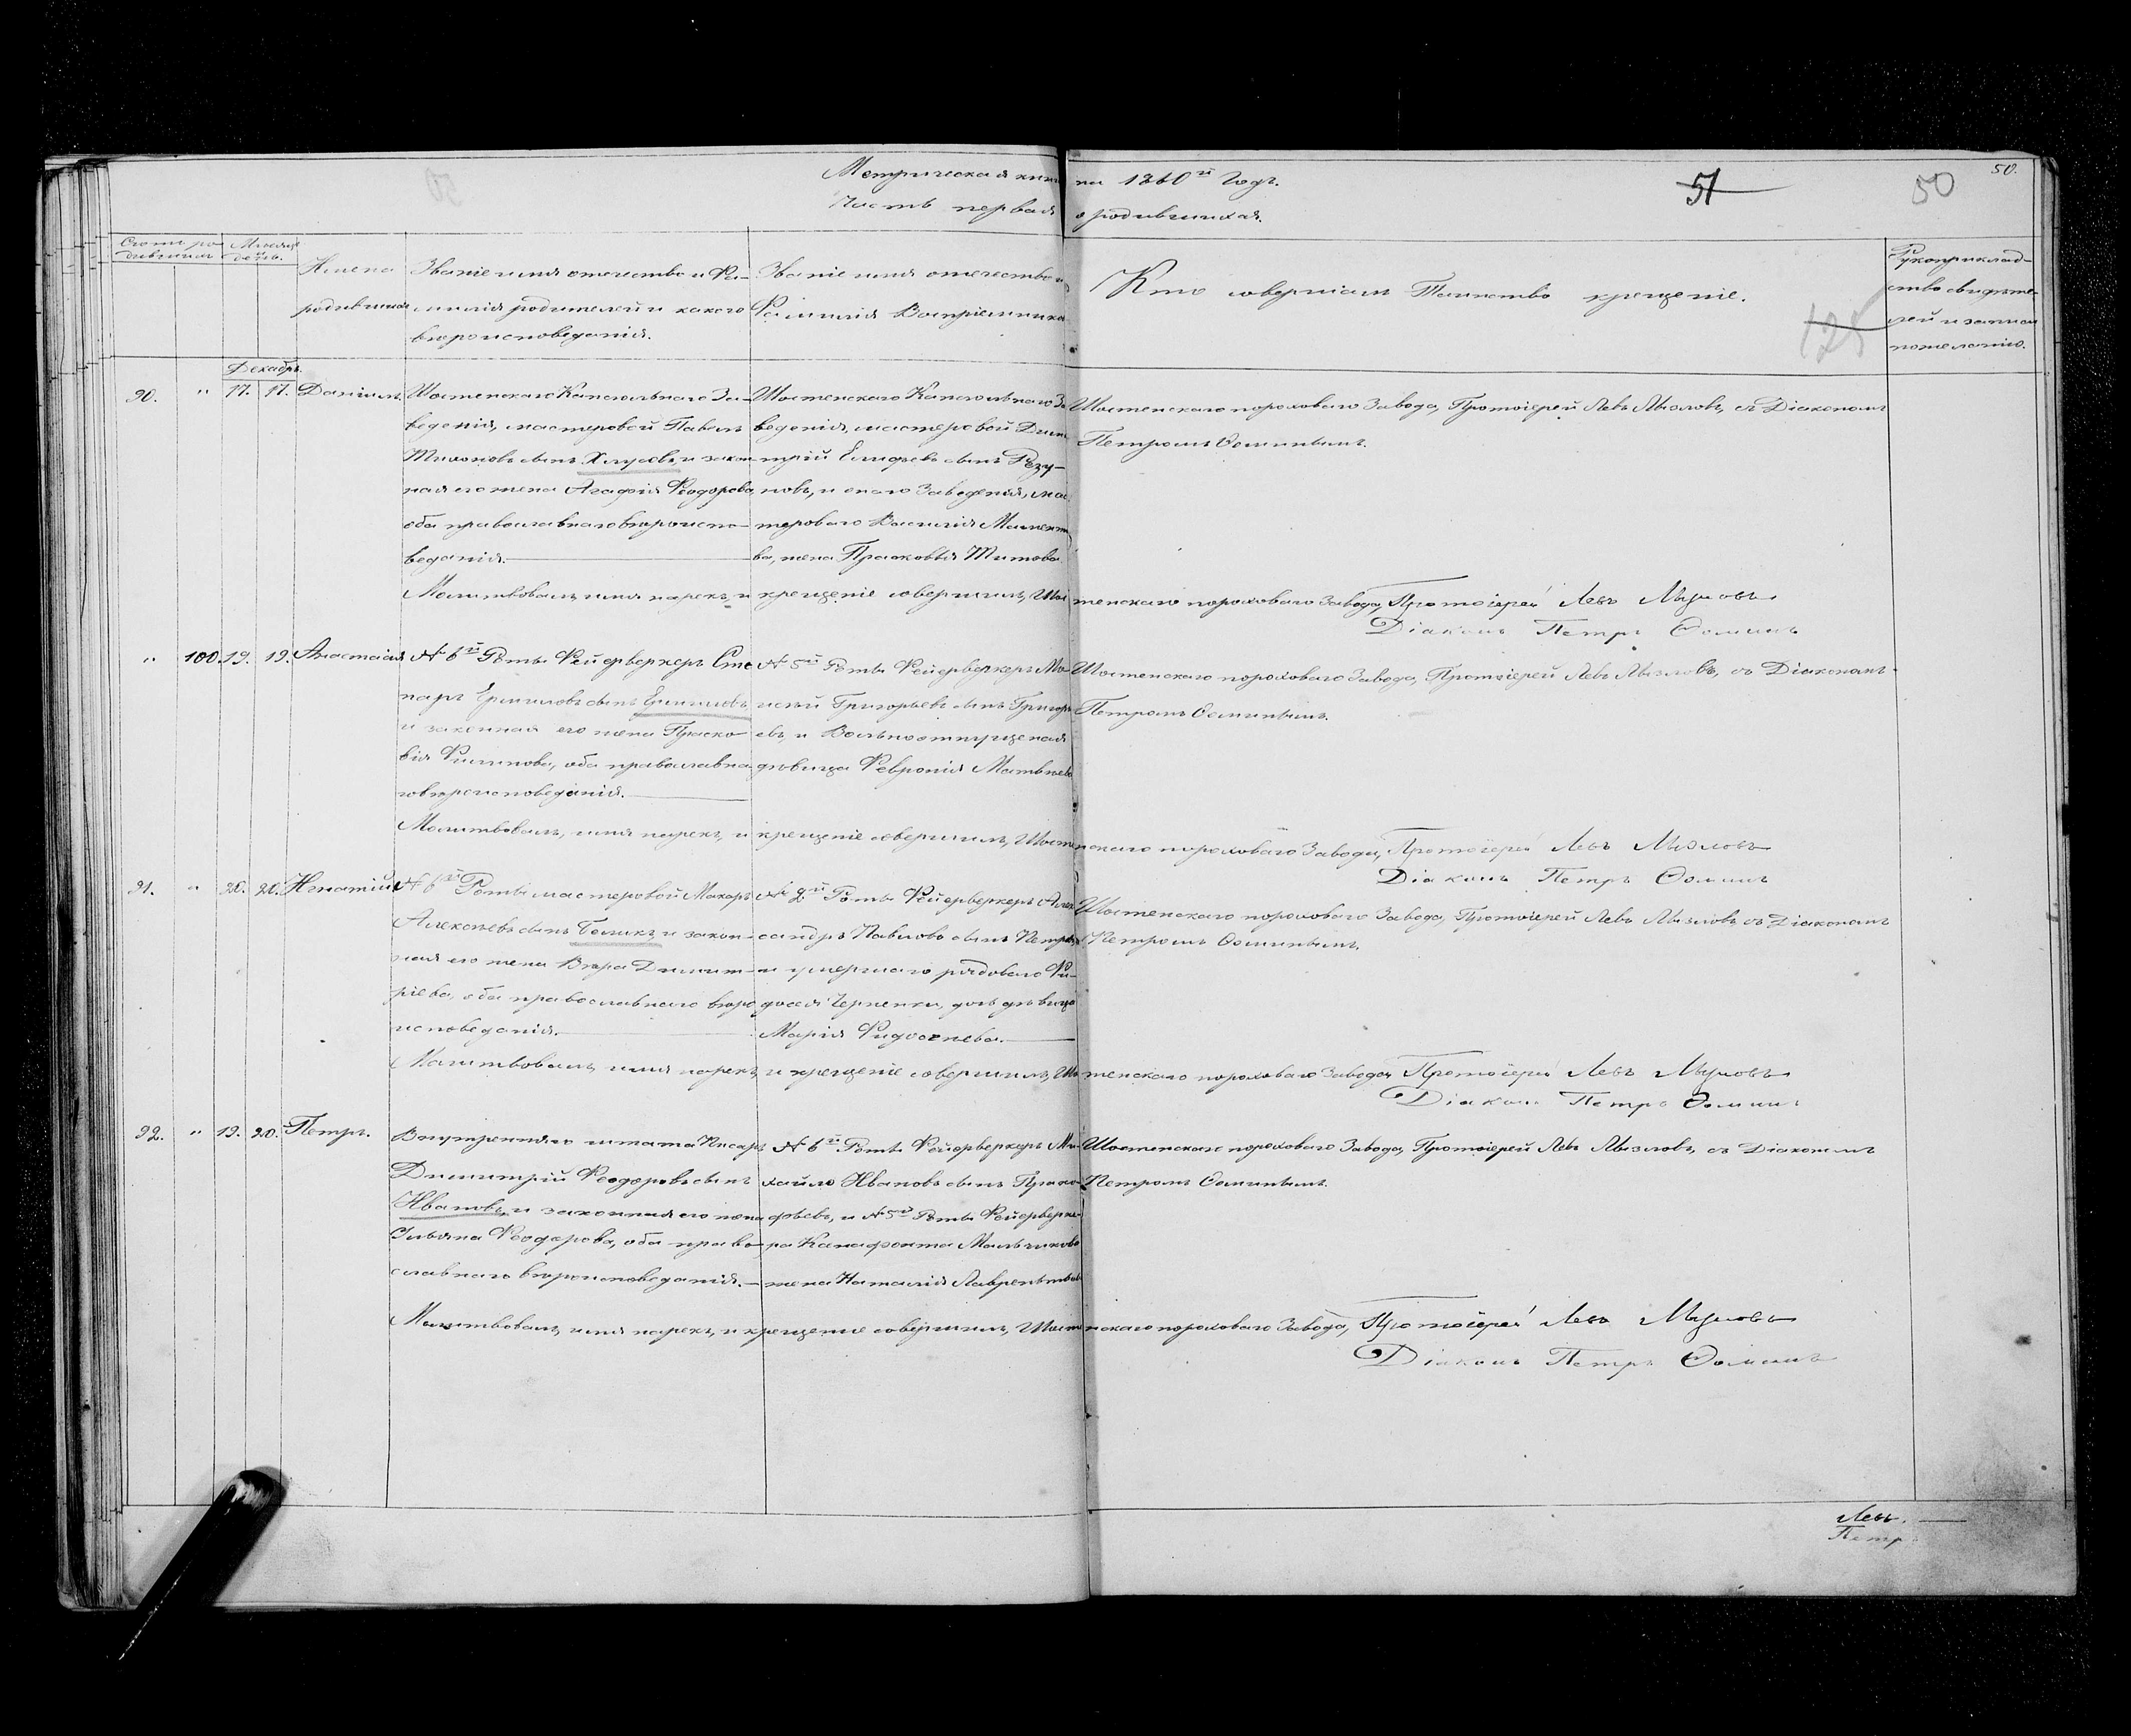 Метрическая книга на 1860й Годъ.
Часть первая о родившихся.
51
50
50.
Счетъ родившихся
Месяцъ и день.
Имена родившихся
Званіе имя отечество и Фамилія родителей и какого вероисповеданія.
Званіе имя отечество и Фамилія Воспріемниковъ
Кто совершалъ Таинство крещеніе.
Рукоприкладство свидѣтелей и записи по желанію.
125
Декабрь
90. " 17. 17. Даніилъ
Шостенскаго Капсюльнаго Заведенія, мастеровой Павелъ
Тихоновъ сынъ Хлусовъ, и законная его жена Агафія Феодорова,
оба православнаго вероисповеданія.
Шостенскаго Капсюльнаго Заведенія, мастеровой Димитрій Елисѣевъ сынъ Резуновъ, и онаго Заведенія, мастероваго Василія
жена Прасковья Титова
Шостенскаго пороховаго Завода, Протоіерей Левъ Мызловъ, съ Діакономъ
Петромъ Ѳоминымъ.
Молитвовалъ, имя нарекъ, и крещеніе совершилъ, Шостенскаго пороховаго Завода, Протоіерей Левъ Мызловъ
Діаконъ Петръ Ѳоминъ
" 100. 19. 19. Анастасія
№ 6й Роты Фейерверкеръ
Ермиловъ сынъ Ермиловъ
и законная его жена Прасковія Филипова, оба православнаго вероисповеданія.
№ 5й Роты Фейерверкеръ Моисѣй Григорьевъ сынъ Григорьевъ, и Вольноотпущенная
дѣвица Февронія Матвѣева
Шостенскаго пороховаго Завода, Протоіерей Левъ Мызловъ, съ Діакономъ
Петромъ Ѳоминымъ.
Молитвовалъ, имя нарекъ, и крещеніе совершилъ, Шостенскаго пороховаго Завода, Протоіерей Левъ Мызловъ
Діаконъ Петръ Ѳоминъ
91. " 20. 20. Игнатій
№ 6й Роты мастеровой Макаръ
Алексѣевъ сынъ Беликъ, и законная его жена Вѣра Димитріева, оба православнаго вероисповеданія.
№ 2й Роты Фейерверкеръ Александръ Павловъ сынъ Петровъ
и умершаго рядоваго Фидосея Черненки, дочь дѣвица
Марія Фидосѣева.
Шостенскаго пороховаго Завода, Протоіерей Левъ Мызловъ съ Діакономъ
Петромъ Ѳоминымъ.
Молитвовалъ, имя нарекъ, и крещеніе совершилъ, Шостенскаго пороховаго Завода Протоіерей Левъ Мызловъ
Діаконъ Петръ Ѳоминъ
92. " 19. 20. Петръ.
Внутренняго штата Писарь
Димитрій Феодоровъ сынъ
Ивановъ, и законная его жена
Ульяна Феодорова, оба православнаго вероисповеданія.
№ 6й Роты Фейерверкеръ Михайло Ивановъ сынъ Прокофьевъ, и № 5й Роты Фейерверкера Мальчикова
жена Наталія Лаврентьева
Шостенскаго пороховаго Завода, Протоіерей Левъ Мызловъ, съ Діакономъ
Петромъ Ѳоминымъ.
Молитвовалъ, имя нарекъ, и крещеніе совершилъ, Шостенскаго пороховаго Завода, Протоіерей Левъ Мызловъ
Діаконъ Петръ Ѳоминъ
Левъ.
Петръ